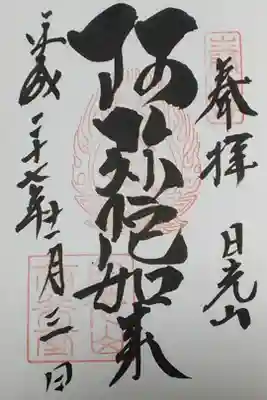 奉拝
日光山
阿弥陀如来
平成二十七年十一月三日